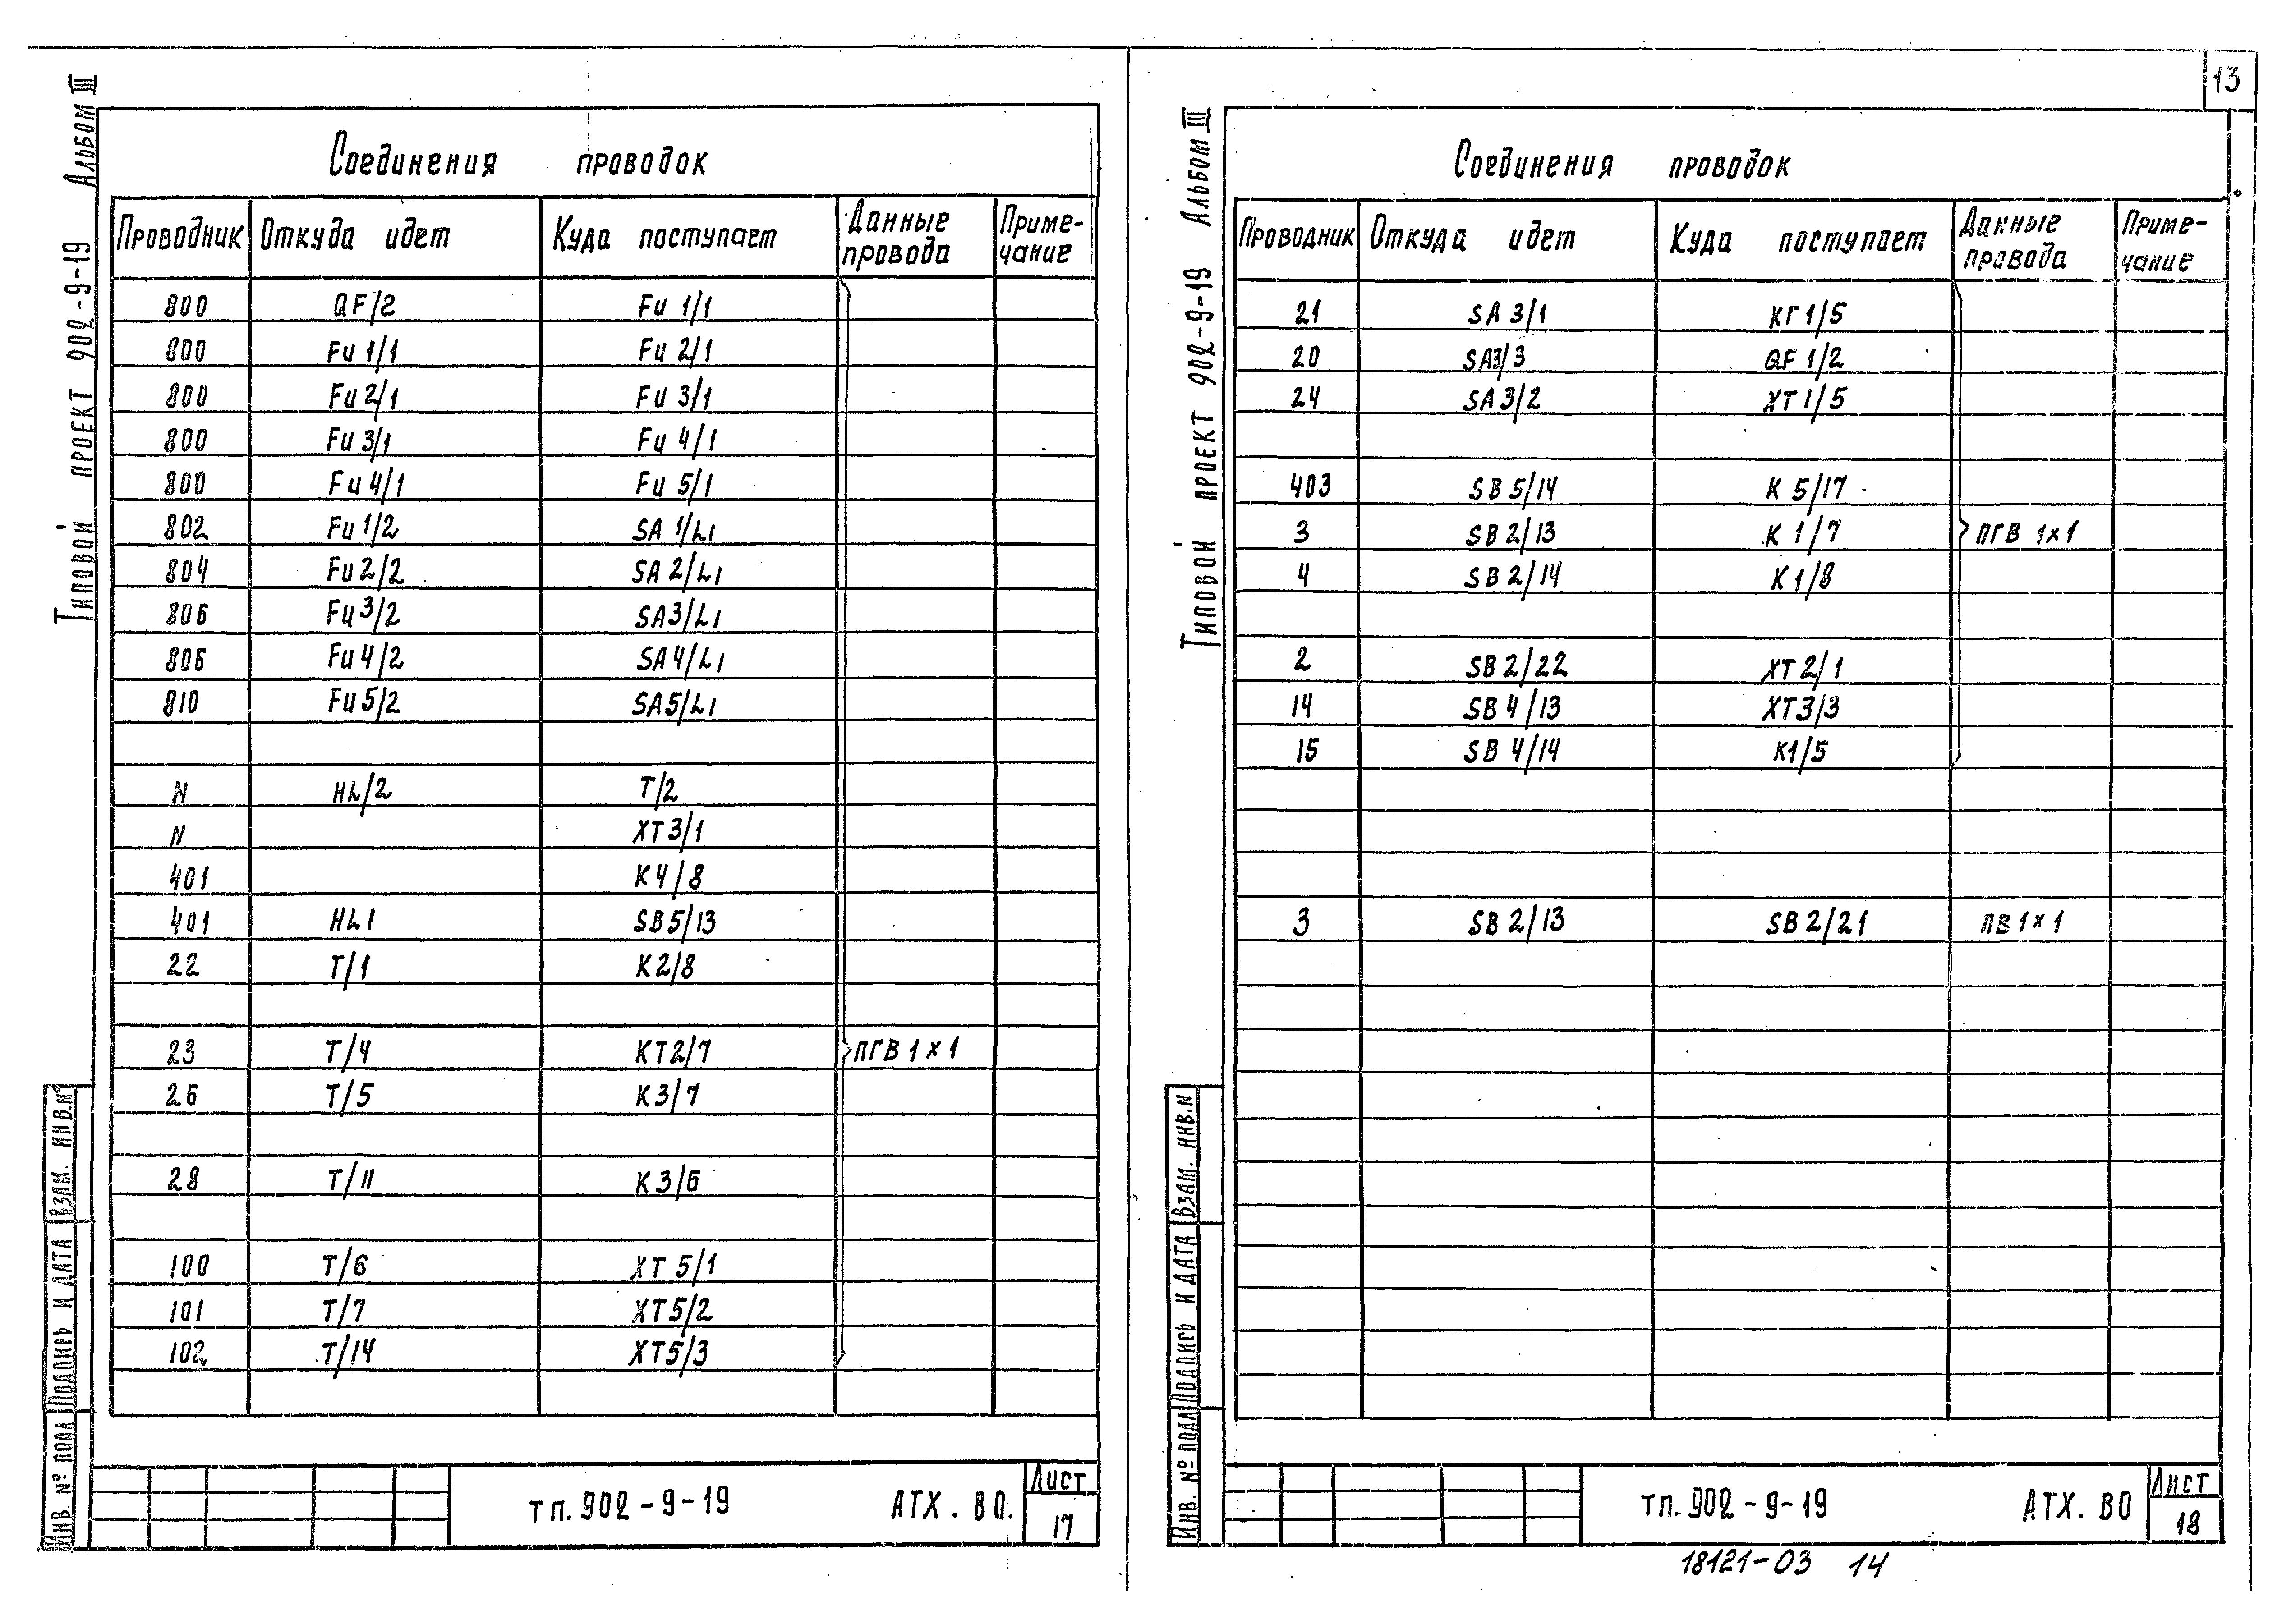 13
Типовой проект 902-9-19 Альбом III
Соединения проводок
Проводник Откуда идет Куда поступает Данные провода Приме-чание
800 QF/2 Fu 1/1
800 Fu 1/1 Fu 2/1
800 Fu 2/1 Fu 3/1
800 Fu 3/1 Fu 4/1
800 Fu 4/1 Fu 5/1
802 Fu 1/2 SA 1/L1
804 Fu 2/2 SA 2/L1
806 Fu 3/2 SA3/L1
806 Fu 4/2 SA4/L1
810 Fu 5/2 SA5/L1
N HL/2 T/2
N XT3/1
401 K4/8
401 HL1 SB5/13
22 T/1 K2/8
23 T/4 KT2/7 ПГВ 1×1
26 T/5 K3/7
28 T/11 K3/6
100 T/6 XT 5/1
101 T/7 XT5/2
102 T/14 XT5/3
Инв. № подл Подпись и дата Взам. инв. №
тп. 902-9-19 АТХ. ВО. Лист 17
Типовой проект 902-9-19 Альбом III
Соединения проводок
Проводник Откуда идет Куда поступает Данные провода Приме-чание
21 SA 3/1 КГ 1/5
20 SA3/3 QF 1/2
24 SA 3/2 XT 1/5
403 SB 5/14 K 5/17
3 SB 2/13 K 1/7 ПГВ 1×1
4 SB 2/14 K1/8
2 SB 2/22 XT 2/1
14 SB 4/13 XT3/3
15 SB 4/14 K1/5
3 SB 2/13 SB 2/21 ПВ 1×1
Инв. № подл Подпись и дата Взам. инв. N
тп. 902-9-19 АТХ. ВО Лист 18
18121-03 14